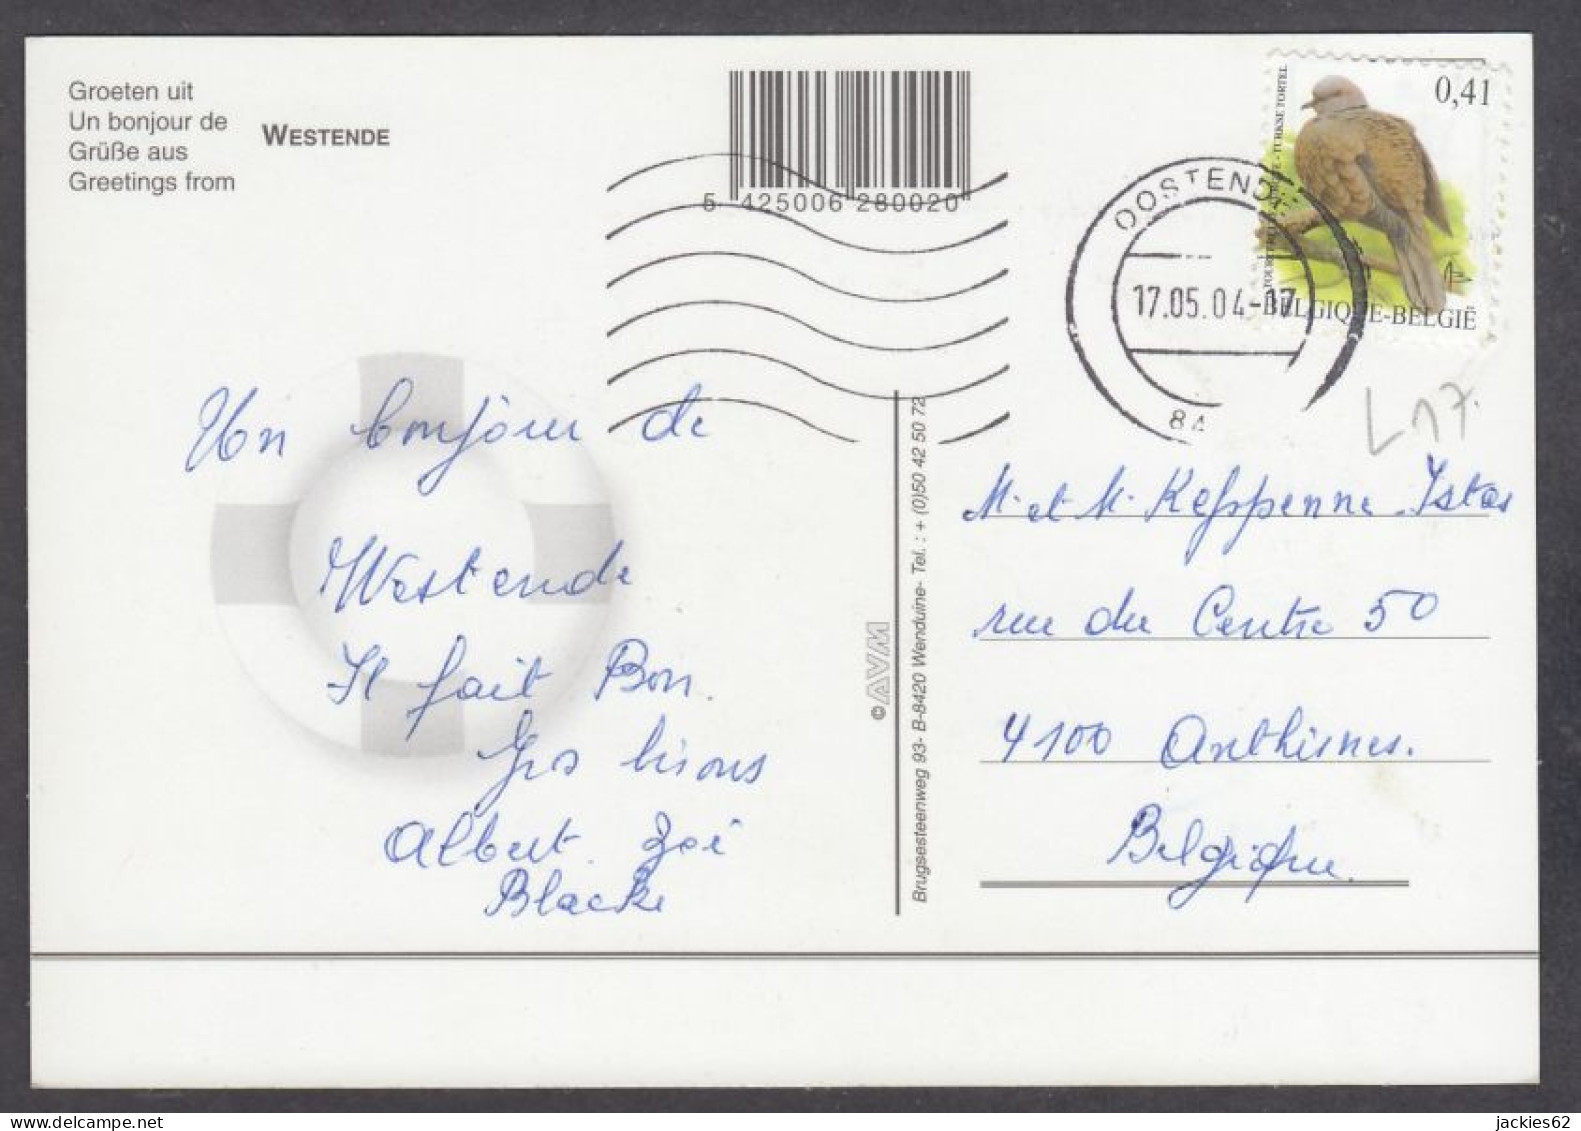 Groeten uit
Un bonjour de
Grüße aus
Greetings from
WESTENDE
5 425006 280020
OOSTENDE
17.05.04-17
0,41
BELGIQUE-BELGIË
L17.
Un bonjour de
Westende
Il fait Bon.
Gros bisous
Albert. Zoé
Blacke
©AVM
Brugsesteenweg 93- B-8420 Wenduine- Tel. : + (0)50 42 50 72
M. et M. Keppenne Istas
rue du Centre 50
4100 Anthisnes.
Belgique.
jackies62